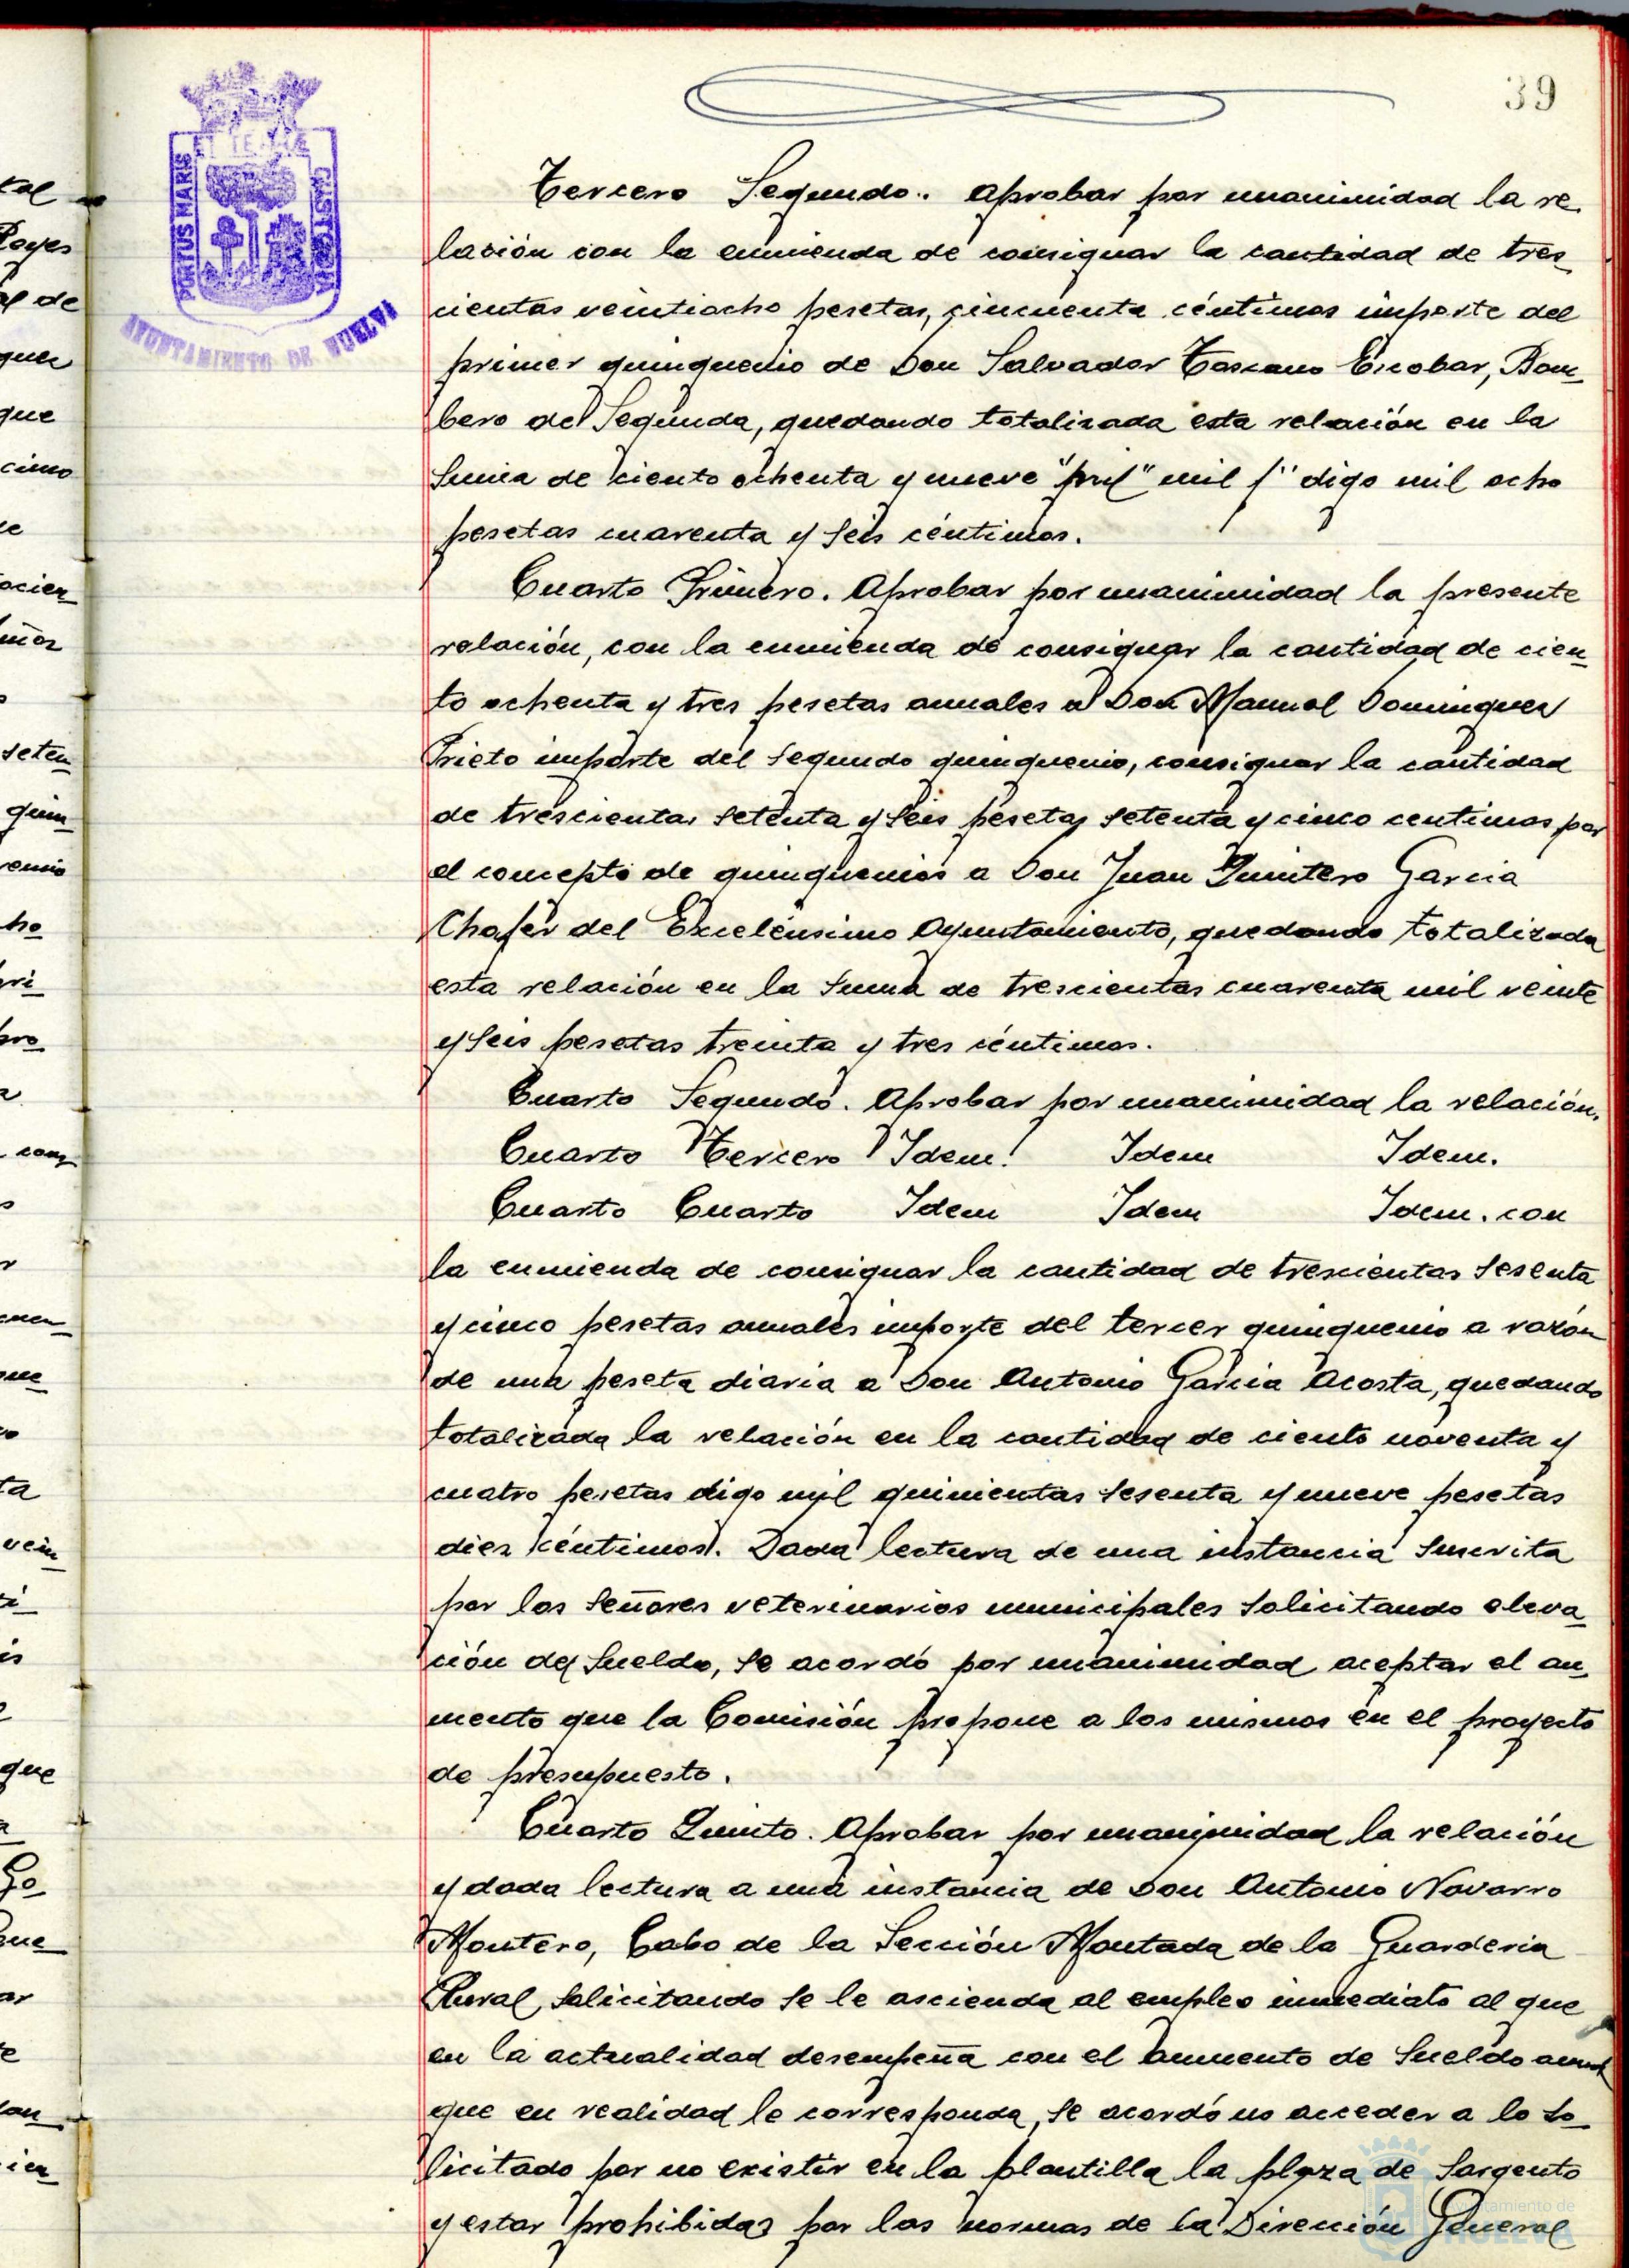 39
PORTUS MARIS
ET TERRÆ
CUSTODIA
AYUNTAMIENTO DE HUELVA
Tercero Segundo.. Aprobar por unanimidad la re-
lación con la enmienda de consignar la cantidad de tres-
cientas veintiocho pesetas, cincuenta céntimos importe del
primer quinquenio de Don Salvador Toscano Escobar, Bom-
bero de Segunda, quedando totalizada esta relación en la
suma de ciento ochenta y nueve "mil" mil digo mil ocho
pesetas cuarenta y seis céntimos.
Cuarto Primero. Aprobar por unanimidad la presente
relación, con la enmienda de consignar la cantidad de cien-
to ochenta y tres pesetas anuales a Don Manuel Dominguez
Prieto importe del segundo quinquenio, consignar la cantidad
de trescientas setenta y seis pesetas setenta y cinco centimos por
el concepto de quinquenios a Don Juan Quintero Garcia
Chofer del Excelensimo Ayuntamiento, quedando totalizada
esta relación en la suma de trescientas cuarenta mil veinte
y seis pesetas treinta y tres céntimos.
Cuarto Segundo. Aprobar por unanimidad la relación.
Cuarto Tercero Idem. Idem Idem.
Cuarto Cuarto Idem Idem Idem. con
la enmienda de consignar la cantidad de trescientas sesenta
y cinco pesetas anuales importe del tercer quinquenio a razón
de una peseta diaria a Don Antonio Garcia Acosta, quedando
totalizada la relación en la cantidad de ciento noventa y
cuatro pesetas digo mil quinientas sesenta y nueve pesetas
diez céntimos. Dada lectura de una instancia suscrita
por los señores veterinarios municipales solicitando eleva-
ción de sueldo, se acordó por unanimidad aceptar el au-
mento que la Comisión propone a los mismos en el proyecto
de presupuesto.
Cuarto Quinto. Aprobar por unanimidad la relación
y dada lectura a una instancia de Don Antonio Navarro
Montero, Cabo de la Sección Montada de la Guarderia
Rural, solicitando se le ascienda al empleo inmediato al que
en la actualidad desempeña con el aumento de sueldo anual
que en realidad le corresponda, se acordó no acceder a lo so-
licitado por no existir en la plantilla la plaza de Sargento
y estar prohibidas por las normas de la Dirección General
Ayuntamiento de
HUELVA